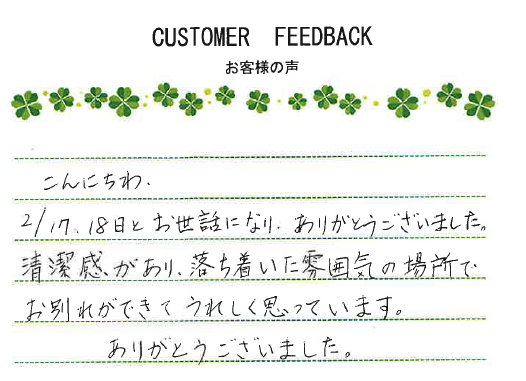 CUSTOMER FEEDBACK
お客様の声
こんにちわ、
2/17、18日とお世話になり、ありがとうございました。
清潔感があり、落ち着いた雰囲気の場所で
お別れができてうれしく思っています。
ありがとうございました。